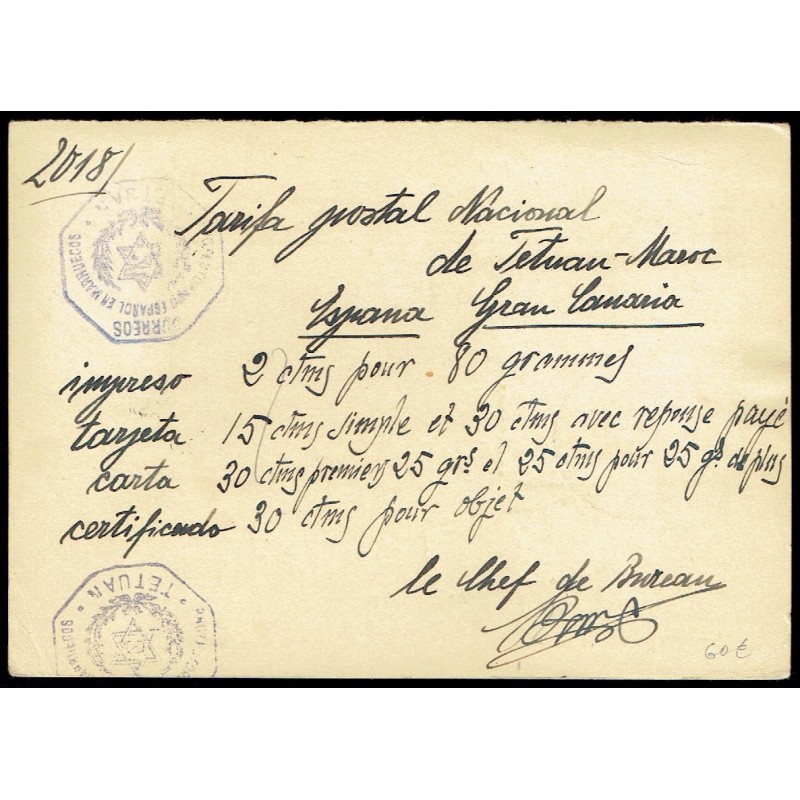 2018/
Tarifa postal Nacional
de Tetuan-Maroc
Espana Gran Canaria
impreso 2 ctms pour 80 grammes
tarjeta 15 ctms simple et 30 ctms avec reponse payé
carta 30 ctms premiers 25 grs et 25 ctms pour 25 gs de plus
certificado 30 ctms pour objet
le Chef de Bureau
60€
CORREOS
ESPAÑOL EN MARRUECOS
TETUAN
MARRUECOS